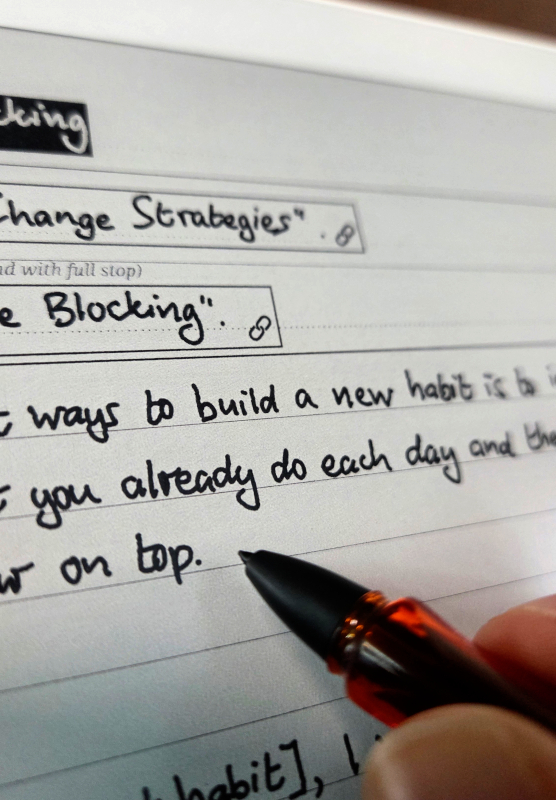 Change Strategies".
with full stop)
Blocking".
ways to build a new habit is to
you already do each day and
on top.
habit],